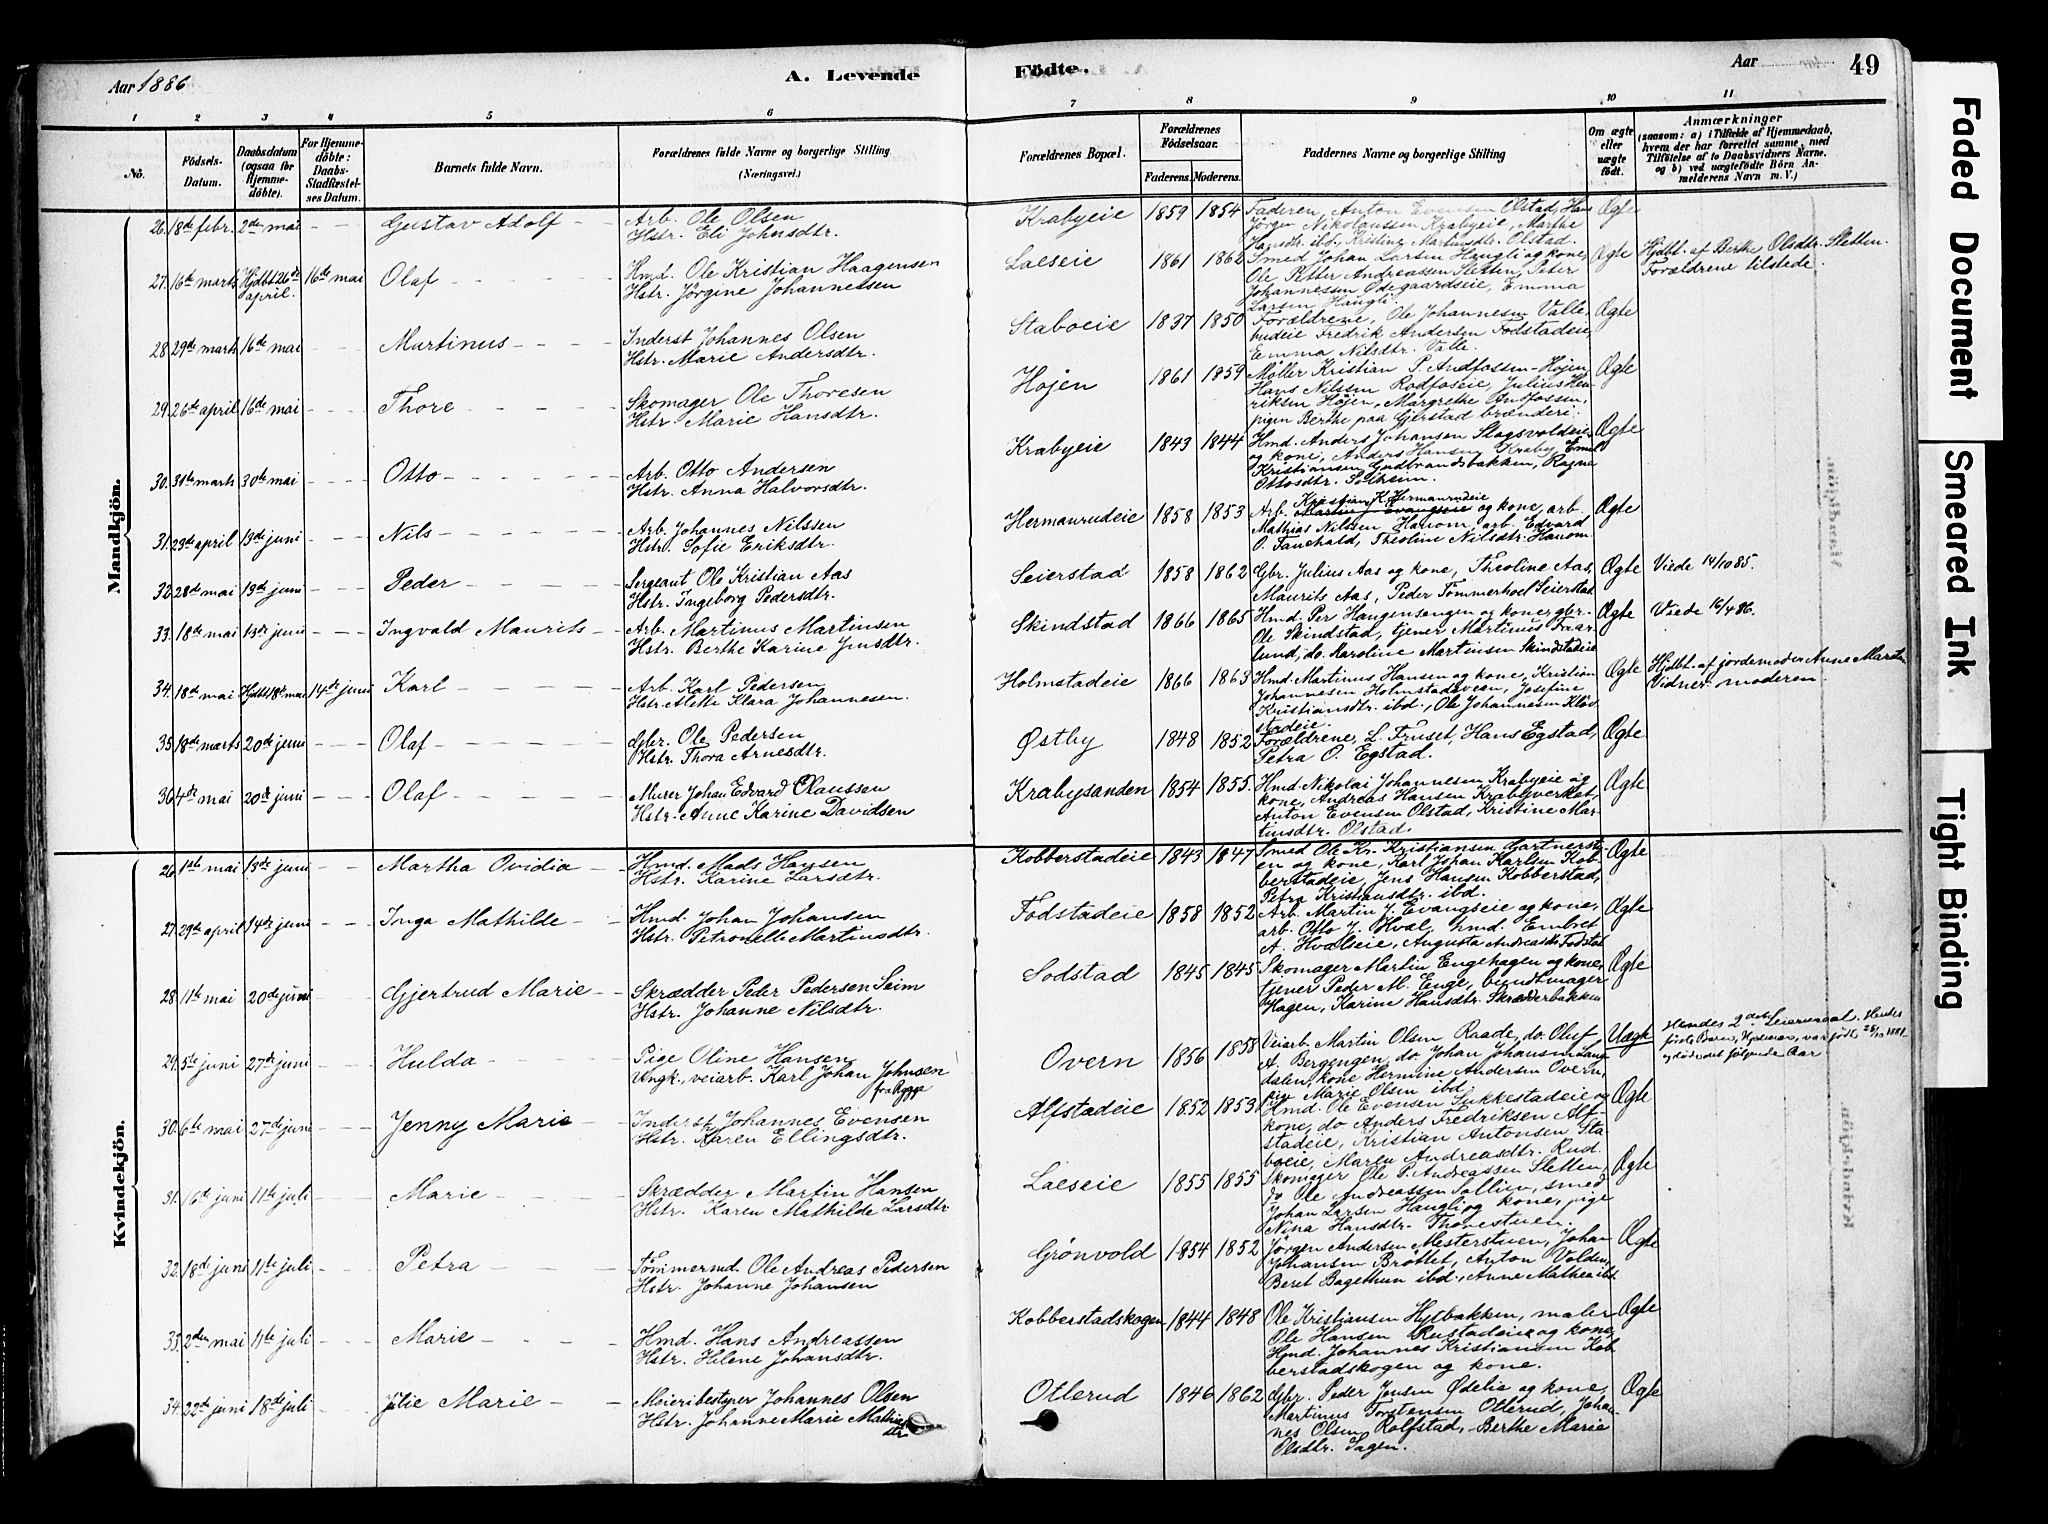 Aar 1886
A. Levende
Födte.
Aar
49
1 2 3 4 5 6 7 8 9 10 11
No.
Födsels-Datum.
Daabsdatum (ogsaa for Hjemme-döbte).
For Hjemme-döbte: Daabs-Stadfæstel-ses Datum.
Barnets fulde Navn.
Forældrenes fulde Navne og borgerlige Stilling
(Næringsvei.)
Forældrenes Bopæl.
Forældrenes Födselsaar.
Faderens. Moderens.
Faddernes Navne og borgerlige Stilling
Om ægte eller uægte födt.
Anmærkninger
(saasom: a) i Tilfælde af Hjemmedaab, hvem der har forrettet samme, med Tilföielse af to Daabsvidners Navne, og b) ved uægtefödte Börn Anmelderens Navn m. V.)
Mandkjön.
26. 18de febr. 2de mai – – Gustav Adolf – – Arb. Ole Olsen
Hstr. Eli Johnsdtr.
Krabyeie 1859 1854 Faderen, Anton Evensen Olstad, Hans
Jørgen Nikolaussen Krabyeie, Marthe
Hansdtr. ibd., Kristine Martinsdtr. Olstad.
Ægte
27. 16de marts Hjdbt 26de april. 16de mai Olaf – – – Hmd. Ole Kristian Haagensen
Hstr. Jörgine Johannessen
Laeseie 1861 1862 Smed Johan Larsen Haugli og kone,
Ole Petter Andreassen Sletten, Peter
Johannessen Ødegaardseie, Emma
Larsen Haugli.
Ægte Hjdbt. af Berthe Olsdtr. Sletten.
Forældrene tilstede.
28. 29de marts 16de mai – – – Martinus – – – Inderst Johannes Olsen
Hstr. Marie Andersdtr.
Staboeie 1837 1850 Forældrene, Ole Johannesen Valle,
Fredrik Andersen Fodstadeie,
Emma Nilsdtr. Valle.
Ægte
29. 26de april 16de mai – – – Thore – – – Skomager Ole Thoresen
Hstr. Marie Hansdtr.
Højen 1861 1859 Møller Kristian P. Andfossen-Højen,
Hans Nilssen Rodfoseie, Julius Hen-
riksen Højen, Margrethe Andfossen,
pigen Berthe paa Gjerstad brænderi.
Ægte
30. 31te marts 30te mai – – – Otto – – – Arb. Otto Andersen
Hstr. Anna Halvorsdtr.
Krabyeie 1843 1844 Hmd. Anders Johansen Slagsvoldeie
og kone, Anders Hansen Kraby, Emil
Kristiansen Gudbrandsbakken, Ragna
Ottosdtr. Solheim.
Ægte
31. 23de april 13de juni – – – Nils – – – Arb. Johannes Nilssen
Hstr. Sofie Eriksdtr.
Hermanrudeie 1858 1853 Kristian K. Hermanrudeie
Arb. Martin J. Evangseie og kone, arb.
Mathias Nilssen Hanom, arb. Edvard
O. Fauchald, Theoline Nilsdtr. Hanom
Ægte
32. 28de mai 13de juni – – – Peder – – – Sergeant Ole Kristian Aas
Hstr. Ingeborg Pedersdtr.
Seierstad 1858 1862 Gbr. Julius Aas og kone, Theoline Aas,
Maurits Aas, Peder Tømmerhoel Seierstad
Ægte Viede 14/10 85.
33. 18de mai 13de juni – – – Ingvald Maurits – Arb. Martinus Martinsen
Hstr. Berthe Karine Jensdtr.
Skindstad 1866 1865 Hmd. Per Haugensengen og kone, gbr.
Ole Skindstad, tjener Martinus Faar-
lund, do. Karoline Martensen Skindstadeie
Ægte Viede 16/4 86.
34. 18de mai Hjdbt 18de mai 14de juni Karl – – – Arb. Karl Pedersen
Hstr. Alette Klara Johannesen.
Holmstadeie 1866 1863 Hmd. Martinus Hansen og kone, Kristian
Johannesen Holmstadsveen, Josefine
Kristiansdtr. ibd., Ole Johannesen Kløv-
stadeie.
Ægte Hjdbt. af jordemoder Anne Marie
Vidner: moderen.
35. 18de marts 20de juni – – – Olaf – – – Gbr. Ole Pedersen
Hstr. Thora Arnesdtr.
Østby 1848 1852 Forældrene, L. Fruset, Hans Egstad,
Petra O. Egstad.
Ægte
36. 4de mai 20de juni – – – Olaf – – – Murer Johan Edvard Olaussen
Hstr. Anne Karine Davidsen
Krabysanden 1854 1855 Hmd. Nikolai Johannesen Krabyeie og
kone, Andreas Hansen Krabyverket,
Anton Evensen Olstad, Kristine Mar-
tinsdtr. Olstad.
Ægte
Kvindekjön.
26. 1ste mai 13de juni – – – Martha Ovidia – – Hmd. Mads Hansen
Hstr. Karine Larsdtr.
Kobberstadeie 1843 1847 Smed Ole Kr. Kristiansen Gartnersty-
en og kone, Karl Johan Karlsen Kob-
berstadeie, Jens Hansen Kobberstad,
Petra Kristiansdtr. ibd.
Ægte
27. 29de april 14de juni – – Inga Mathilde – Hmd. Johan Johansen
Hstr. Petronelle Martinsdtr.
Fodstadeie 1858 1852 Arb. Martin J. Evangseie og kone,
arb. Otto J. Hval, hmd. Embret
A. Hvalseie, Augusta Andreasdtr. Fodstad
Ægte
28. 11te mai 20de juni – – Gjertrud Marie – – Skrædder Peder Pedersen Seim
Hstr. Johanne Nilsdtr.
Sodstad 1845 1845 Skomager Martin Engehagen og kone,
tjener Peder M. Enge, bundtmager
Hagen, Karine Hansdtr. Skrædderbakken
Ægte
29. 5te juni 27de juni – – Hulda – – – Pige Oline Hansen
Ungk., veiarb. Karl Johan Johnsen
fra Rygge
Overn 1856 1858 Veiarb. Martin Olsen Raade, do. Oluf
A. Bergengen, do. Johan Johansen Lang-
dalen, kone Hermine Andersen Overn,
pige Marie Olsen ibd.
Uægte Hendes 2det Leiermaal. Hendes
første Barn, var født 25/10 1881
og døde det følgende Aar
30. 6te mai 27de juni – – Jenny Marie – Inderst Johannes Evensen
Hstr. Karen Ellingsdtr.
Alfstadeie 1852 1853 Hmd. Ole Evensen Sukkestadeie og
kone, do Anders Fredriksen Alf-
stadeie, Kristian Antonsen Sta-
boeie, Maren Andreasdtr. Rud.
Ægte
31. 16de juni 11te juli – – Marie – – – Skrædder Martin Hansen
Hstr. Karen Mathilde Larsdtr
Laeseie 1855 1855 Skomager Ole P. Andreassen Sletten,
do Ole Andreassen Sollien, smed
Johan Larsen Haugli og kone, pige
Nina Hansdtr. Thorestuen.
Ægte
32. 18de juni 11te juli – – Petra – – – Tömmermd. Ole Andreas Pedersen
Hstr. Johanne Johansen
Grönvold 1854 1852 Jörgen Andersen Mesterstuen, Johan
Johansen Bröttet, Anton Volden,
Beret Bagethun ibd., Anne Mathea ibd.
Ægte
33. 2den mai 11te juli – – Marie – – – Hmd. Hans Andreassen
Hstr. Helene Johansdtr.
Kobberstadskogen 1844 1848 Ole Kristiansen Hytbakken, maler
Ole Hansen Rustadeie og kone,
Hmd. Johannes Kristiansen Kob-
berstadskogen og kone.
Ægte
34. 22de juni 18de juli – – Julie Marie – – Meieribestyrer Johannes Olsen
Hstr. Johanne Marie Mathias
dtr
Otterud 1846 1862 Gbr. Peder Jensen Ødelie og kone,
Martinus Torstensen Otterud, Johan-
nes Olsen Rolfstad, Berthe Marie
Olsdtr. Sagen.
Ægte
Faded Document
Smeared Ink
Tight Binding